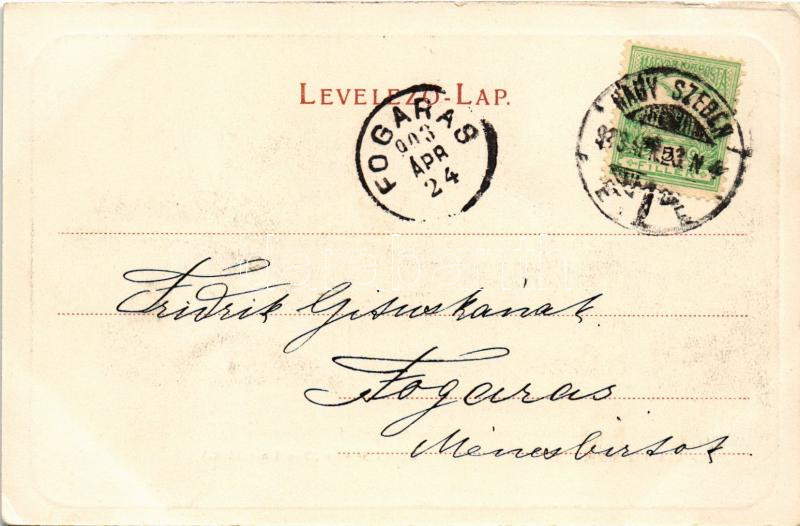 LEVELEZŐ-LAP.
FOGARAS
903
APR
24
NAGY SZEBEN
FILLÉR
Fridrik Gituskának
Fogaras
Ménesbirtok